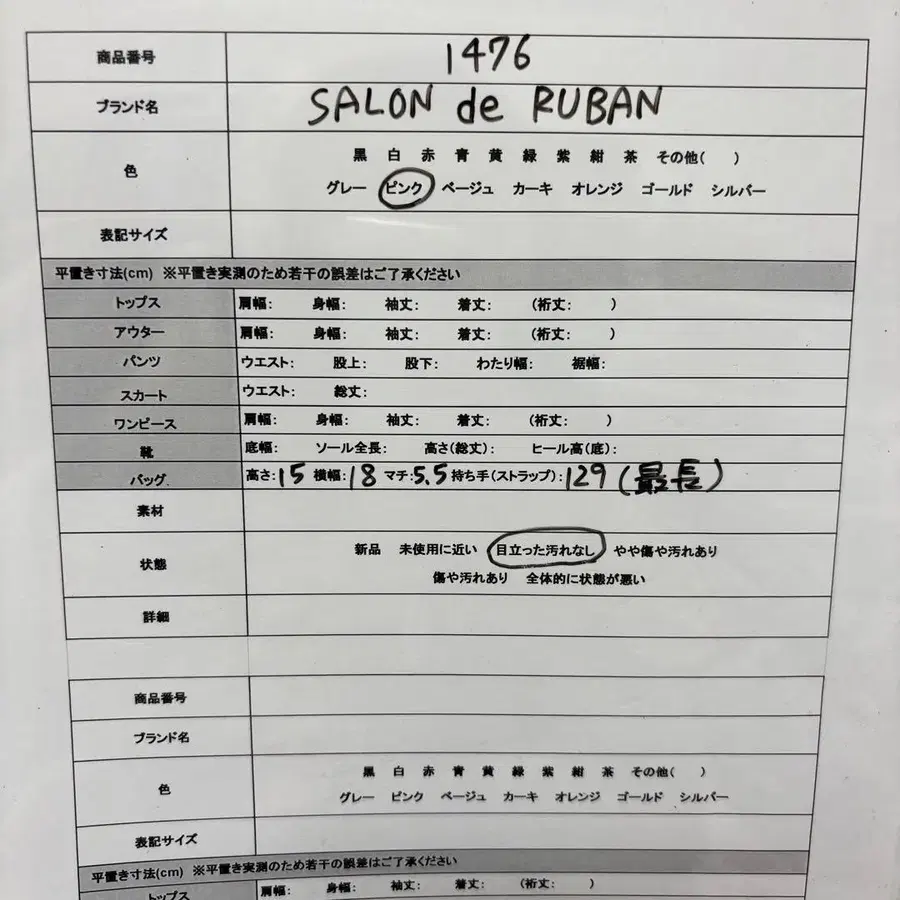 商品番号 1476
ブランド名 SALON de RUBAN
色 黒 白 赤 青 黄 緑 紫 紺 茶 その他( )
グレー ピンク ベージュ カーキ オレンジ ゴールド シルバー
表記サイズ
平置き寸法(cm) ※平置き実測のため若干の誤差はご了承ください
トップス 肩幅: 身幅: 袖丈: 着丈: (裄丈: )
アウター 肩幅: 身幅: 袖丈: 着丈: (裄丈: )
パンツ ウエスト: 股上: 股下: わたり幅: 裾幅:
スカート ウエスト: 総丈:
ワンピース 肩幅: 身幅: 袖丈: 着丈: (裄丈: )
靴 底幅: ソール全長: 高さ(総丈): ヒール高(底):
バッグ 高さ:15 横幅:18 マチ:5.5 持ち手(ストラップ):129 (最長)
素材
状態 新品 未使用に近い 目立った汚れなし やや傷や汚れあり
傷や汚れあり 全体的に状態が悪い
詳細
商品番号
ブランド名
色 黒 白 赤 青 黄 緑 紫 紺 茶 その他( )
グレー ピンク ベージュ カーキ オレンジ ゴールド シルバー
表記サイズ
平置き寸法(cm) ※平置き実測のため若干の誤差はご了承ください
トップス 肩幅: 身幅: 袖丈: 着丈: (裄丈: )